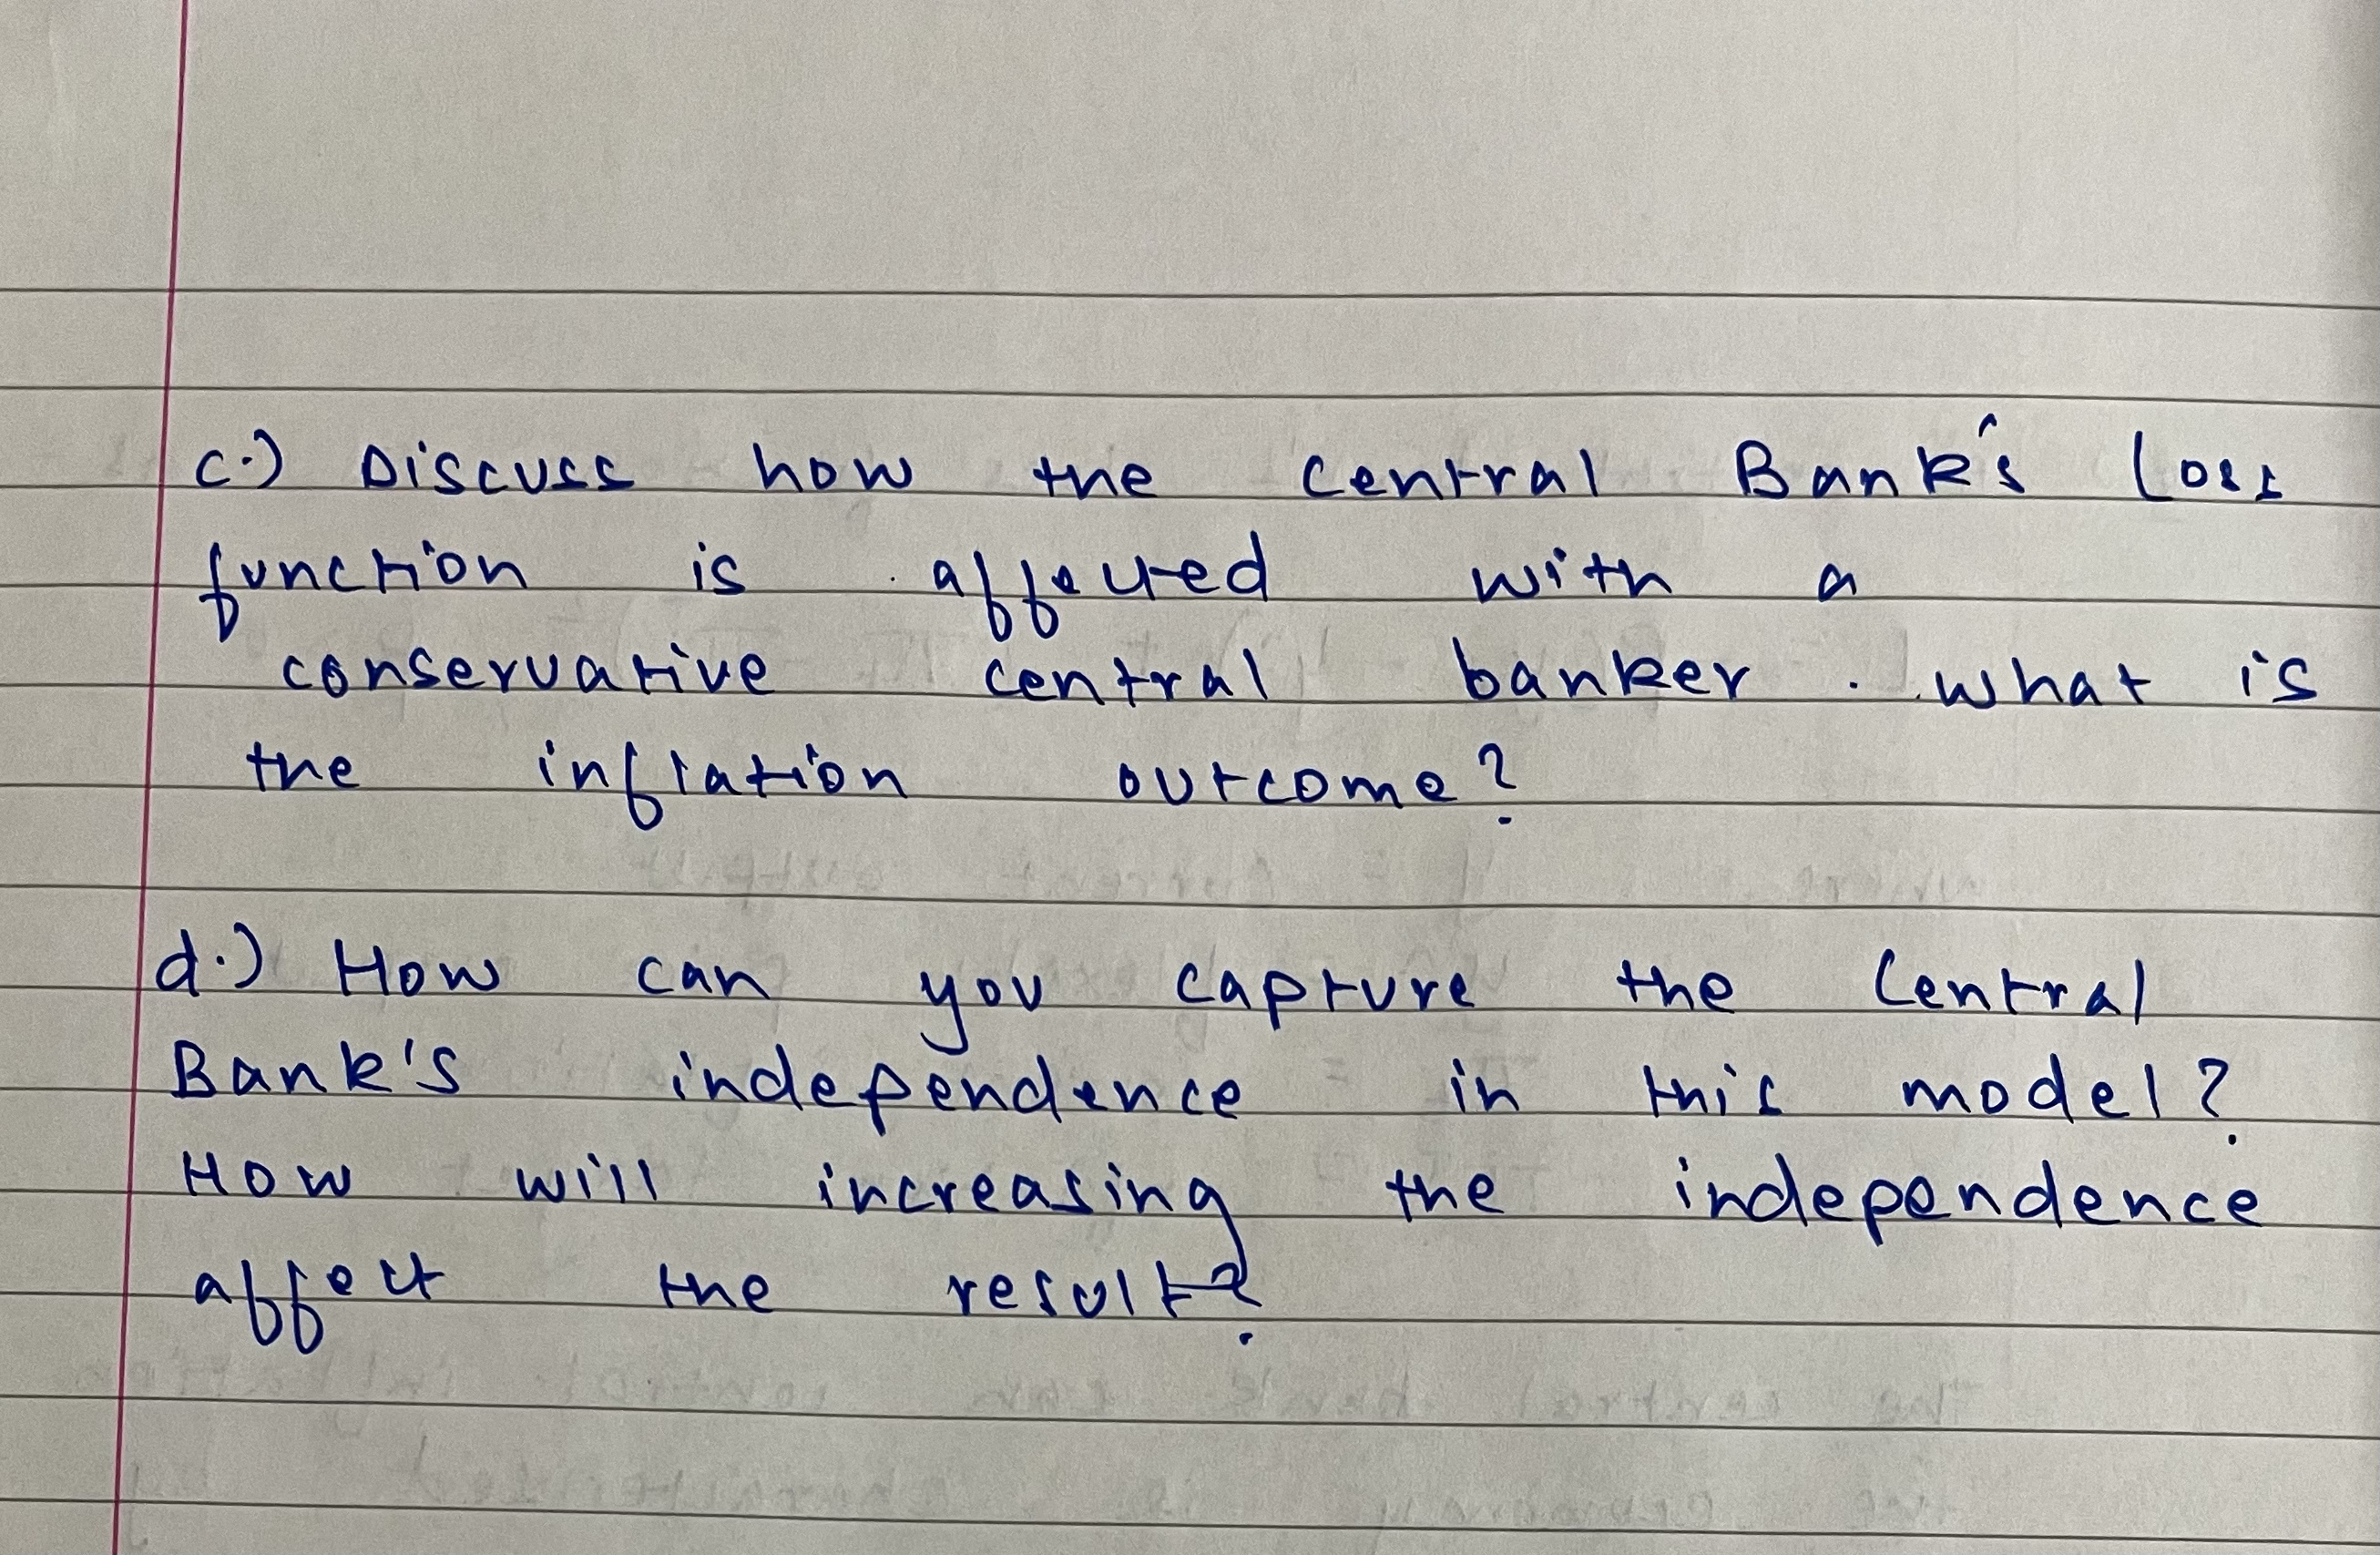 c.) Discuss how the central Bank's Loss
function is affected with a
conservative central banker. what is
the inflation outcome?
d.) How can you capture the Central
Bank's independence in this model?
How will increasing the independence
affect the result?